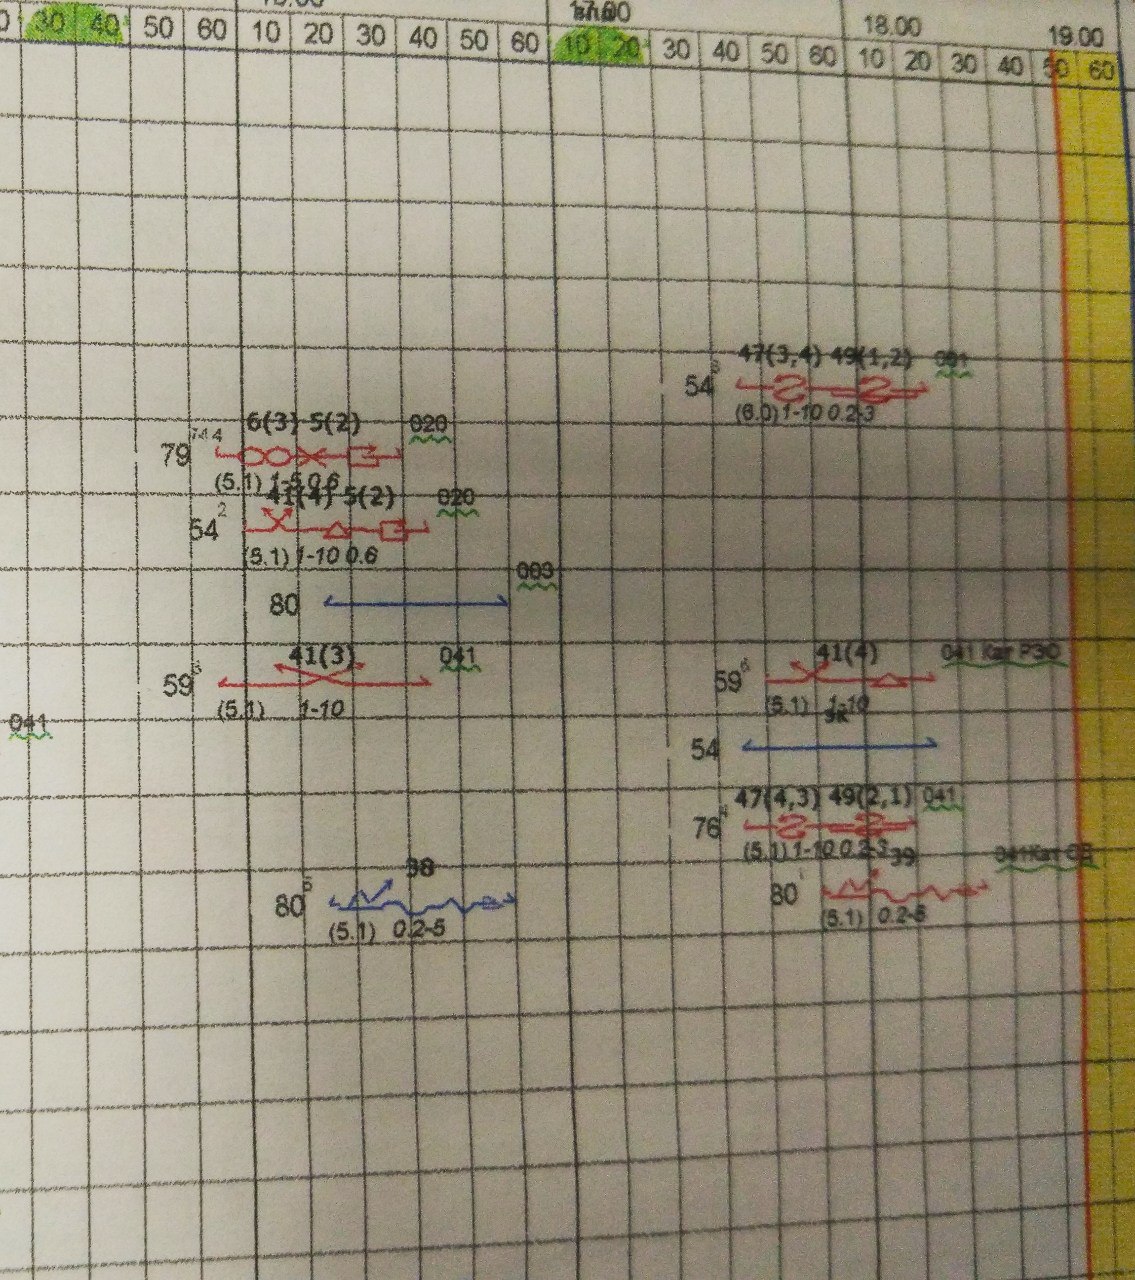 18.00 19.00
30 40 50 60 10 20 30 40 50 60 10 20 30 40 50 60 10 20 30 40 50 60
47(3,4) 49(1,2)
54
(6.0) 1-10 0.2-3
6(3) 5(2) 020
79
(5.1) 1-5 0.6
41(4) 5(2) 020
54 2
(5.1) 1-10 0.6
003
80
41(3) 041
59
(5.1) 1-10
41(4) 041 Кат РЭО
59 6
(5.1) 1-10
041
54
47(4,3) 49(2,1) 041
76 4
(5.1) 1-10 0.2-3
38
80 5
(5.1) 0.2-5
39
80
(5.1) 0.2-5